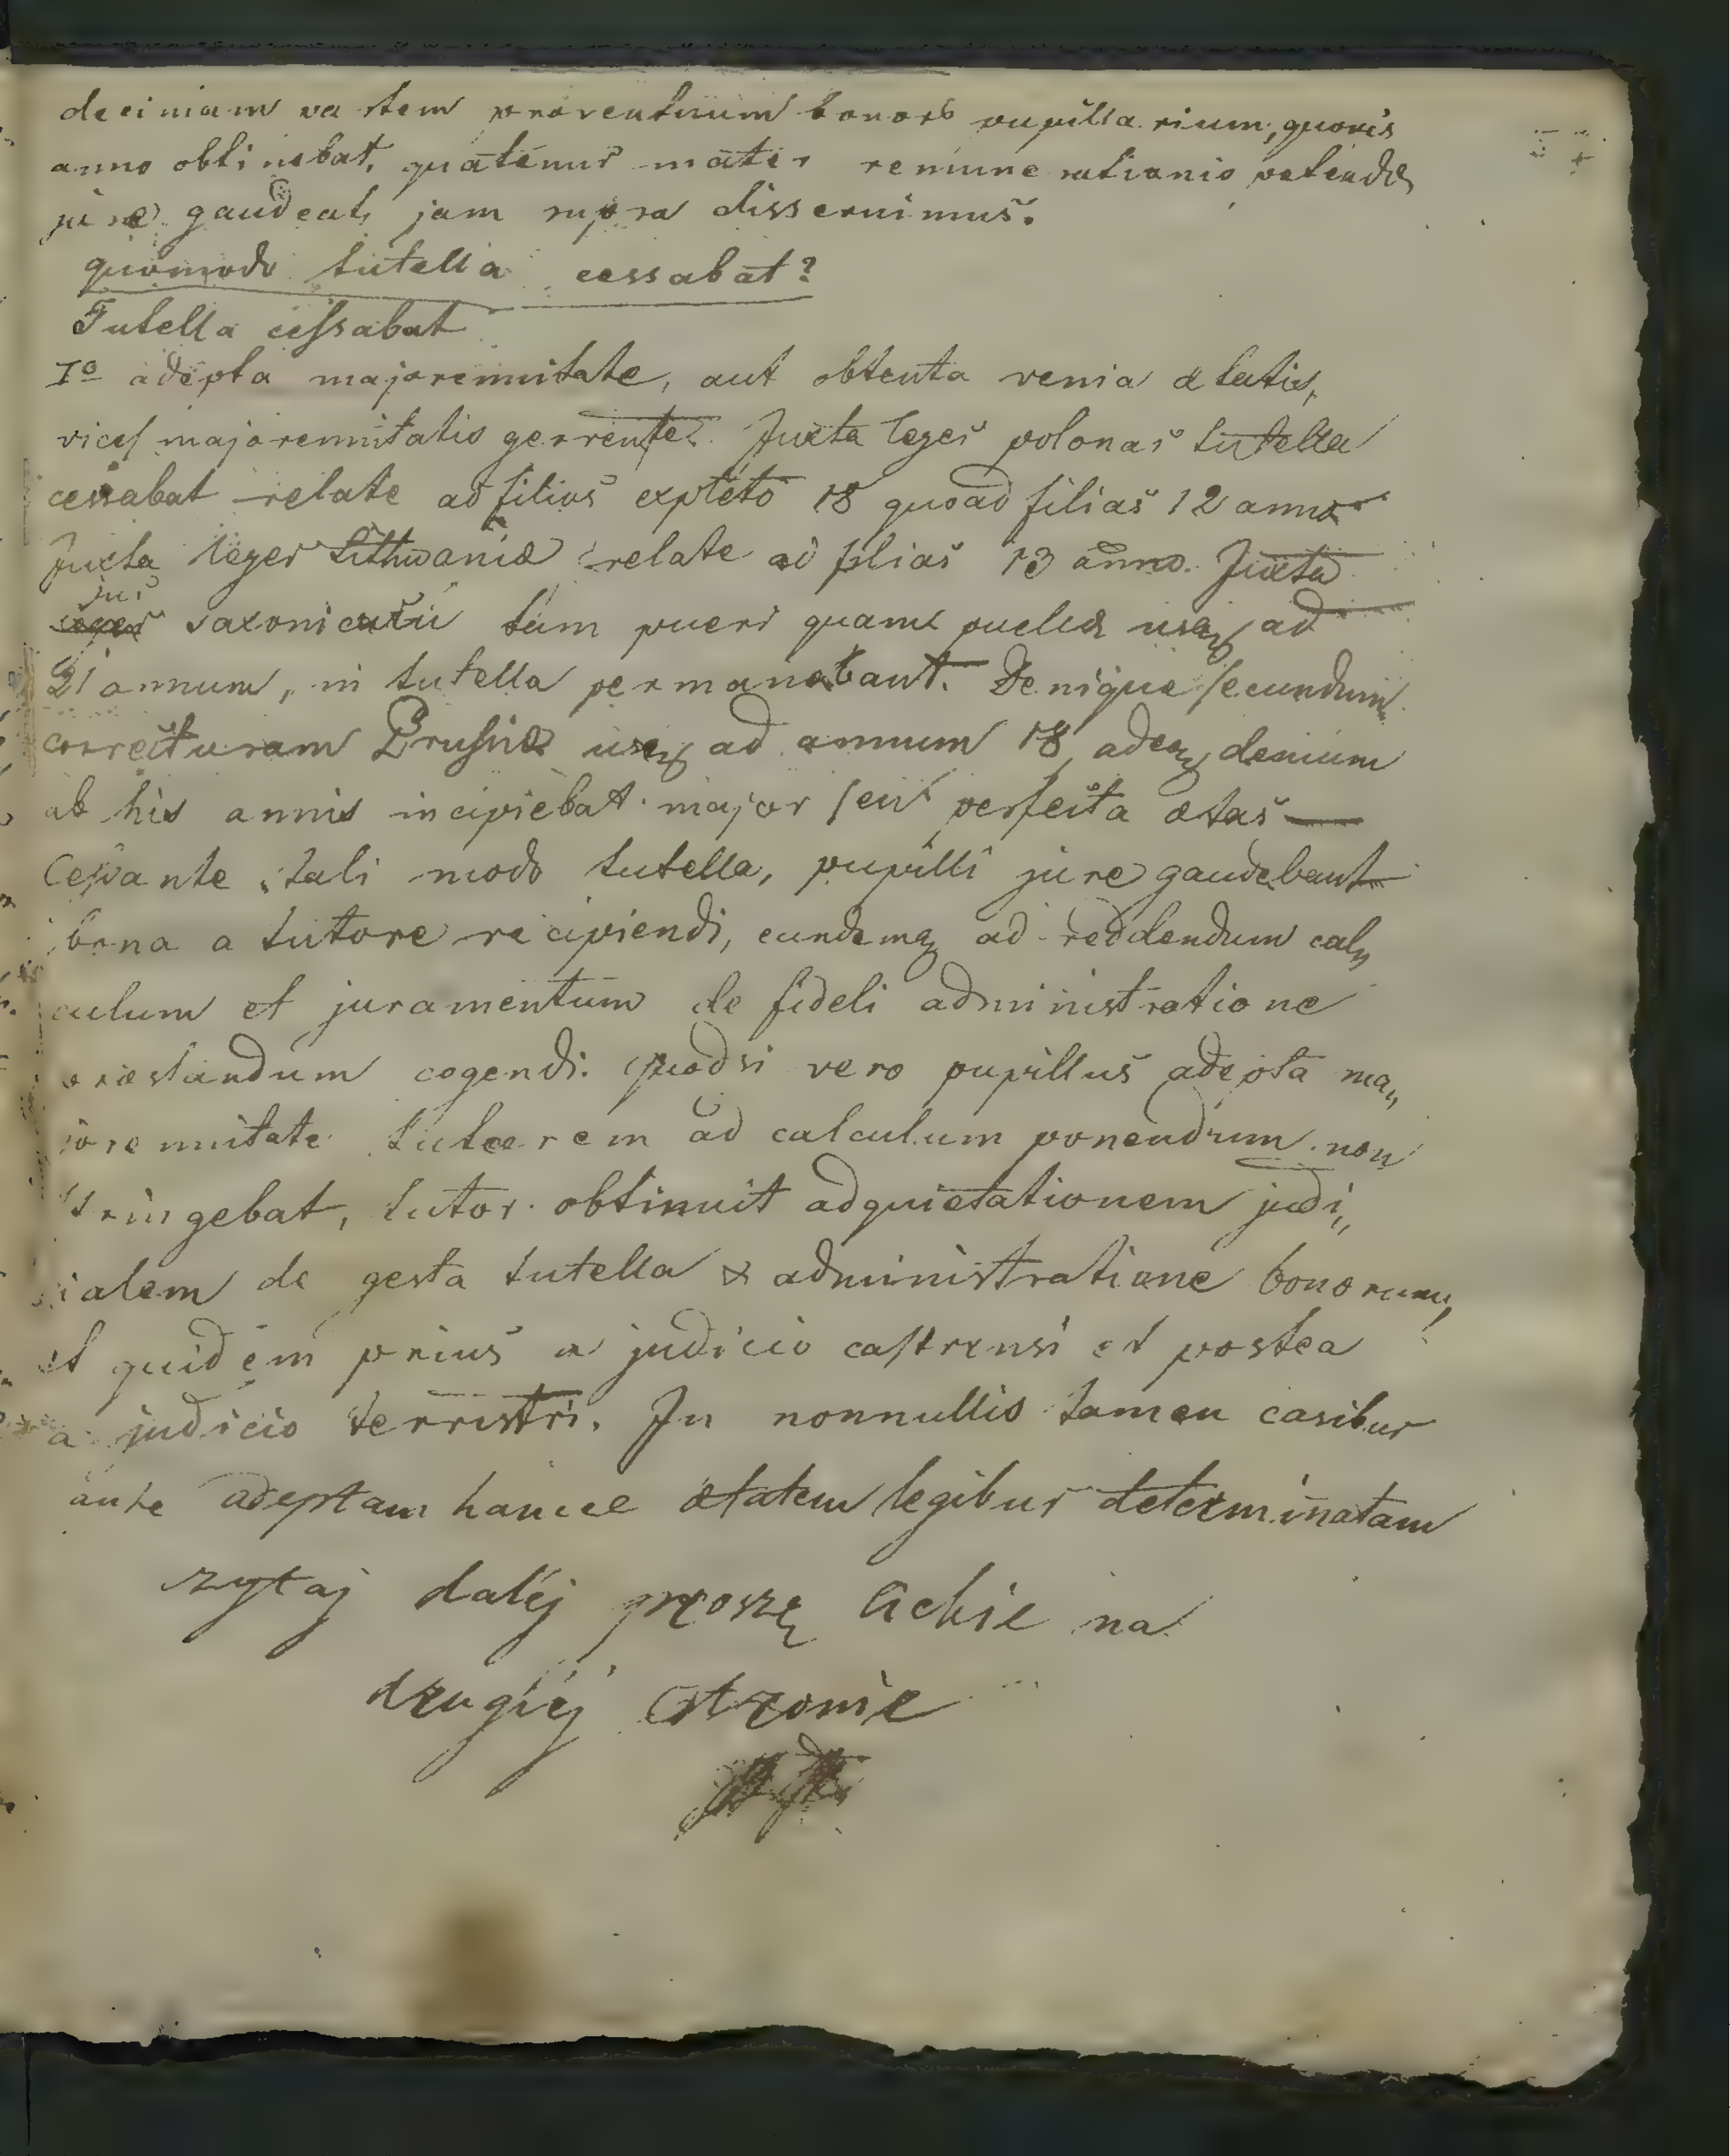 decimam partem proventuum bonorb pupillarium, quovis
anno obtinebat, quatenus mater remunerationis petendæ
jure gaudeat, jam supra disseruimus.
quomodo tutella cessabat?
Tutella cessabat
Iº adepta majorennitate, aut obtenta venia ætatis,
vices majorennitatis gerrente. Juxta leges polonas tutella
cessabat relate ad filios expleto 18 quoad filias 12 anno
Juxta leges Lithwaniæ relate ad filias 13 anno. Juxta
jus saxonicum tam pueri quam puellæ usq ad
21 annum, in tutella permanebant. Denique secundum
correcturam Prusiæ usq ad annum 18, adeoq demum
ab his annis incipiebat major seu perfecta ætas —
Cessante tali modo tutella, pupilli jure gaudebant
bona a tutore recipiendi, eundemq ad reddendum cal„
culum et juramentum de fideli administratione
præstandum cogendi. quodsi vero pupillus adepta ma„
jorennitate tutorem ad calculum ponendum non
stringebat, tutor obtinuit adquietationem judi„
cialem de gesta tutella & administratione bonorum,
et quidem prius a judicio castrensi et postea
a judicio terrestri. In nonnullis tamen casibus
ante adeptam hancce ætatem legibus determinatam
czytaj daléj proszę Ciebie na
drugiéj stronie